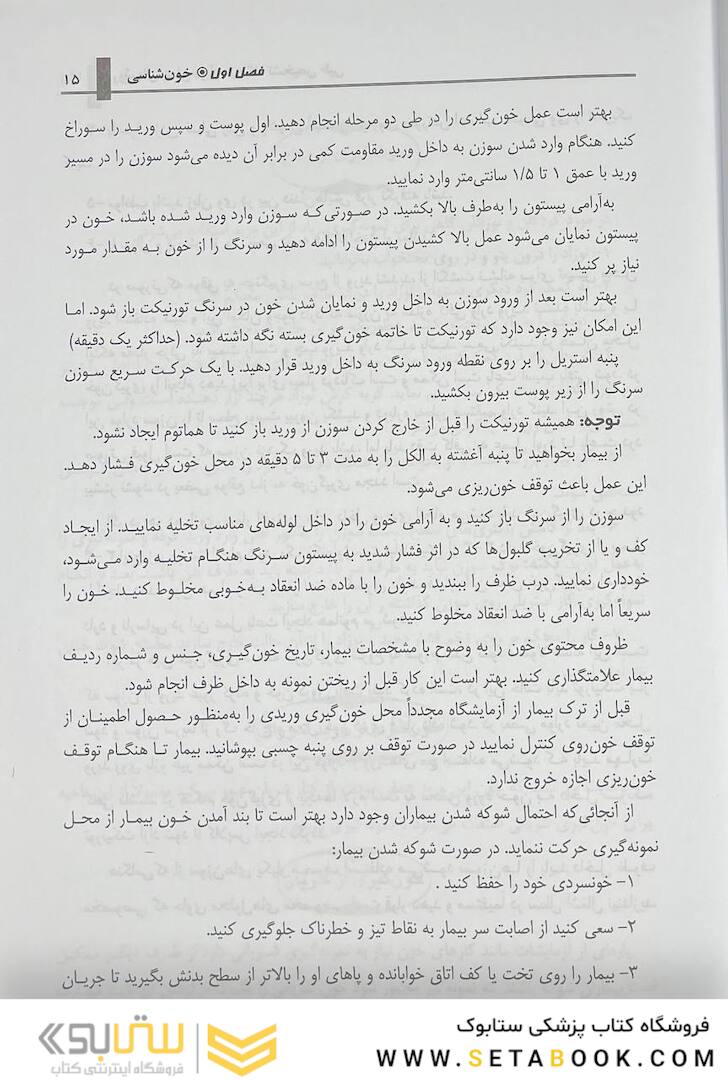 فصل اول ۞ خون‌شناسی ۱۵
بهتر است عمل خون‌گیری را در طی دو مرحله انجام دهید. اول پوست و سپس ورید را سوراخ
کنید. هنگام وارد شدن سوزن به داخل ورید مقاومت کمی در برابر آن دیده می‌شود سوزن را در مسیر
ورید با عمق ۱ تا ۱/۵ سانتی‌متر وارد نمایید.
به‌آرامی پیستون را به‌طرف بالا بکشید. در صورتی‌که سوزن وارد ورید شده باشد، خون در
پیستون نمایان می‌شود عمل بالا کشیدن پیستون را ادامه دهید و سرنگ را از خون به مقدار مورد
نیاز پر کنید.
بهتر است بعد از ورود سوزن به داخل ورید و نمایان شدن خون در سرنگ تورنیکت باز شود. اما
این امکان نیز وجود دارد که تورنیکت تا خاتمه خون‌گیری بسته نگه داشته شود. (حداکثر یک دقیقه)
پنبه استریل را بر روی نقطه ورود سرنگ به داخل ورید قرار دهید. با یک حرکت سریع سوزن
سرنگ را از زیر پوست بیرون بکشید.
توجه: همیشه تورنیکت را قبل از خارج کردن سوزن از ورید باز کنید تا هماتوم ایجاد نشود.
از بیمار بخواهید تا پنبه آغشته به الکل را به مدت ۳ تا ۵ دقیقه در محل خون‌گیری فشار دهد.
این عمل باعث توقف خون‌ریزی می‌شود.
سوزن را از سرنگ باز کنید و به آرامی خون را در داخل لوله‌های مناسب تخلیه نمایید. از ایجاد
کف و یا از تخریب گلبول‌ها که در اثر فشار شدید به پیستون سرنگ هنگام تخلیه وارد می‌شود،
خودداری نمایید. درب ظرف را ببندید و خون را با ماده ضد انعقاد به‌خوبی مخلوط کنید. خون را
سریعاً اما به‌آرامی با ضد انعقاد مخلوط کنید.
ظروف محتوی خون را به وضوح با مشخصات بیمار، تاریخ خون‌گیری، جنس و شماره ردیف
بیمار علامتگذاری کنید. بهتر است این کار قبل از ریختن نمونه به داخل ظرف انجام شود.
قبل از ترک بیمار از آزمایشگاه مجدداً محل خون‌گیری وریدی را به‌منظور حصول اطمینان از
توقف خون‌روی کنترل نمایید در صورت توقف بر روی پنبه چسبی بپوشانید. بیمار تا هنگام توقف
خون‌ریزی اجازه خروج ندارد.
از آنجائی‌که احتمال شوکه شدن بیماران وجود دارد بهتر است تا بند آمدن خون بیمار از محل
نمونه‌گیری حرکت ننماید. در صورت شوکه شدن بیمار:
۱- خونسردی خود را حفظ کنید .
۲- سعی کنید از اصابت سر بیمار به نقاط تیز و خطرناک جلوگیری کنید.
۳- بیمار را روی تخت یا کف اتاق خوابانده و پاهای او را بالاتر از سطح بدنش بگیرید تا جریان
فروشگاه کتاب پزشکی ستابوک
WWW.SETABOOK.COM
ستابوک
فروشگاه اینترنتی کتاب